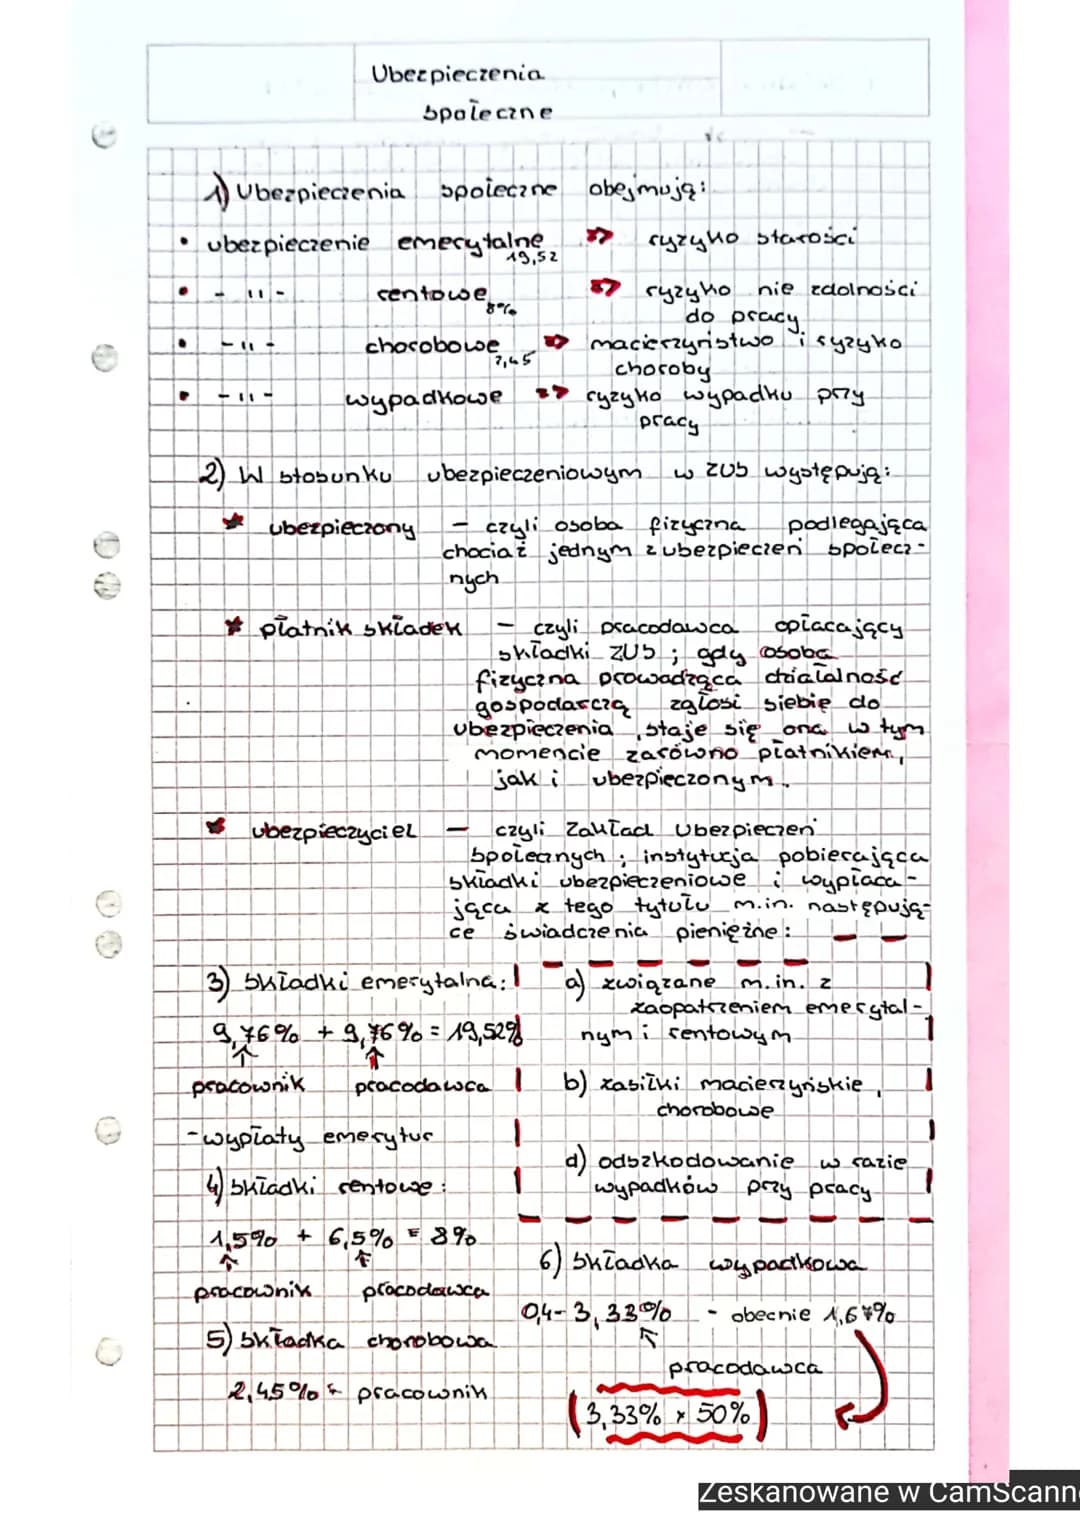 Ubezpieczenia
społeczne
1) Ubezpieczenia społeczne obejmują:
• ubezpieczenie emerytalne 19,52 => ryzyko starości
• - 11 - rentowe 8% => ryzyko nie zdolności
do pracy
• - 11 - chorobowe 2,45 => macierzyństwo i ryzyko
choroby
• - 11 - wypadkowe => ryzyko wypadku przy
pracy
2) W stosunku ubezpieczeniowym w ZUS występują:
* ubezpieczony - czyli osoba fizyczna podlegająca
chociaż jednym z ubezpieczeń społecz-
nych
* płatnik składek - czyli pracodawca opłacający
składki ZUS ; gdy osoba
fizyczna prowadząca działalność
gospodarczą zgłosi siebie do
ubezpieczenia, staje się ona w tym
momencie zarówno płatnikiem,
jak i ubezpieczonym.
* ubezpieczyciel - czyli Zakład Ubezpieczeń
Społecznych ; instytucja pobierająca
składki ubezpieczeniowe i wypłaca-
jąca z tego tytułu m.in. następują-
ce świadczenia pieniężne:
a) związane m.in. z
zaopatrzeniem emerytal-
nym i rentowym
b) zasiłki macierzyńskie,
chorobowe
d) odszkodowanie w razie
wypadków przy pracy
3) Składki emerytalna:
9,76% + 9,76% = 19,52%
pracownik pracodawca
- wypłaty emerytur
4) Składki rentowe:
1,5% + 6,5% = 8%
pracownik pracodawca
5) Składka chorobowa
2,45% ← pracownik
6) Składka wypadkowa
0,4- 3,33% - obecnie 1,67%
pracodawca
(3,33% x 50%)
Zeskanowane w CamScann